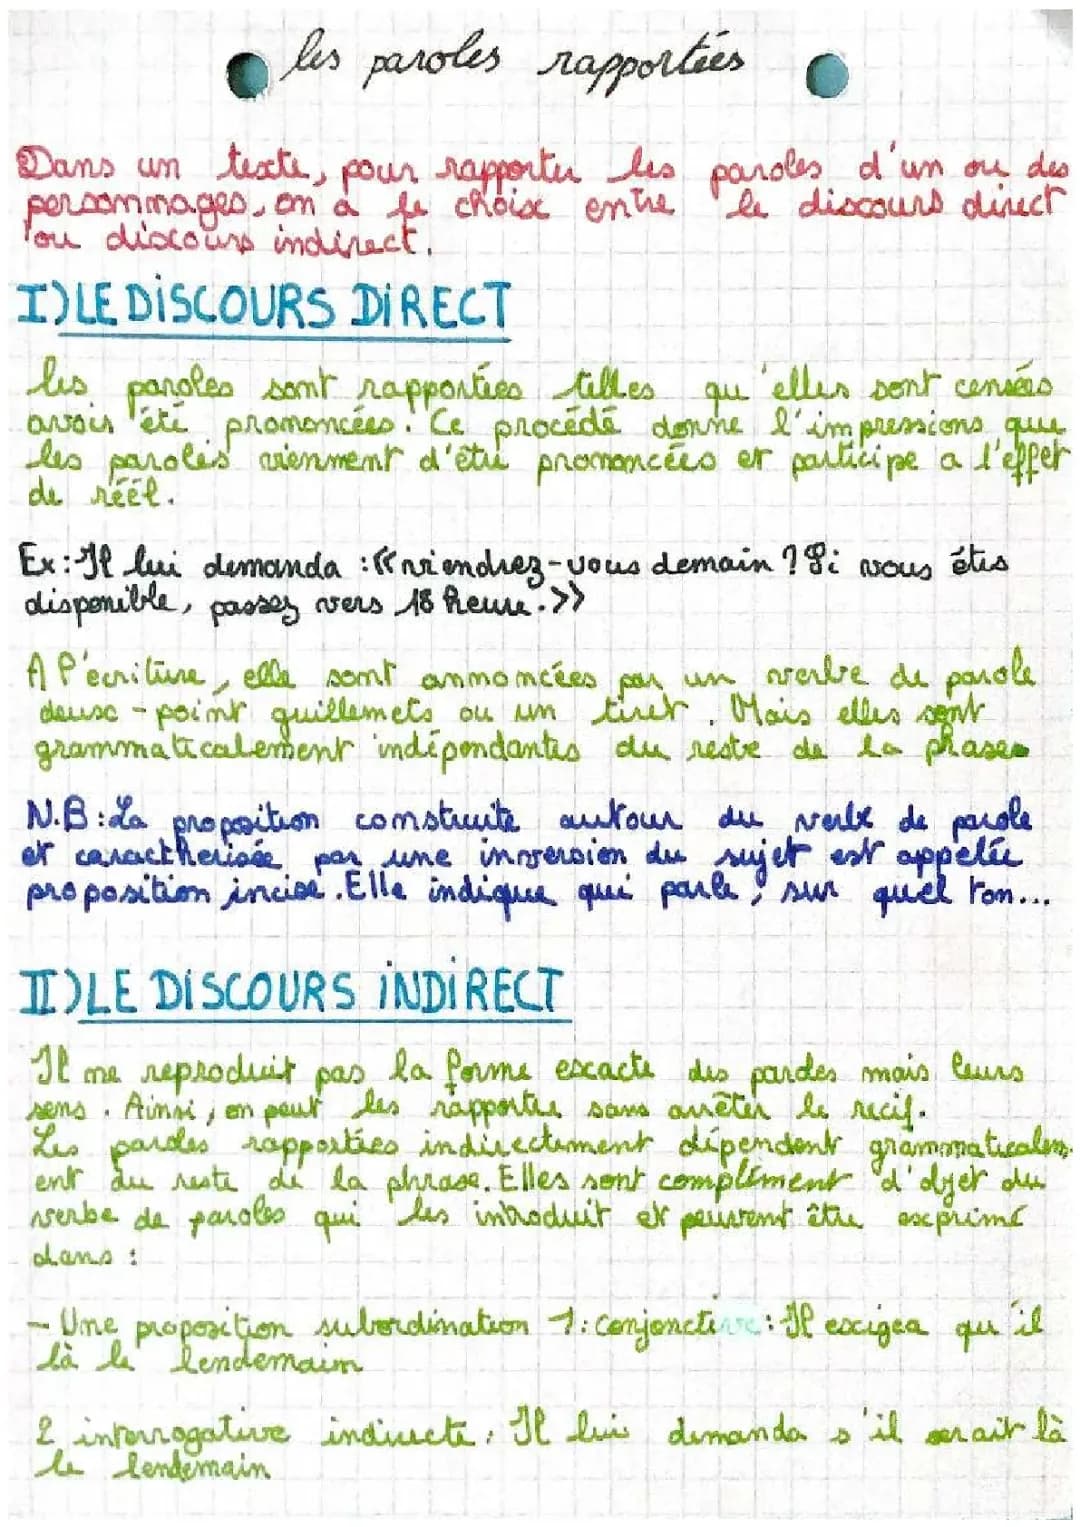 les paroles rapportées
Dans un texte, pour rapporter les paroles d'un ou des
personnages, on a le choix entre le discours direct
ou discours indirect.
I) LE DISCOURS DIRECT
les paroles sont rapportées telles qu'elles sont censées
avoir été prononcées. Ce procédé donne l'impressions que
les paroles viennent d'être prononcées et participe a l'effet
de réél.
Ex: Il lui demanda : «viendrez-vous demain ? Si vous étes
disponible, passez vers 18 heure.>>
A l'écriture, elle sont annoncées par un verbe de parole
deux-point guillemets ou un tiret. Mais elles sont
grammaticalement indépendantes du reste de la phase.
N.B: La proposition construite autour du verbe de parole
et caractherisée par une inversion du sujet est appelée
proposition incise. Elle indique qui parle, sur quel ton...
II) LE DISCOURS INDIRECT
Il ne reproduit pas la forme excacte des paroles mais leurs
sens. Ainsi, on peut les rapporter sans arrêter le récif.
Les paroles rapportées indirectement dépendent grammaticalem-
ent du reste de la phrase. Elles sont complément d'objet du
verbe de paroles qui les introduit et peuvent être exprimé
dans :
- Une proposition subordination 1: conjonctive: Il exigea qu'il
là le lendemain
2 interrogative indirecte, Il lui demanda s'il serait là
le lendemain